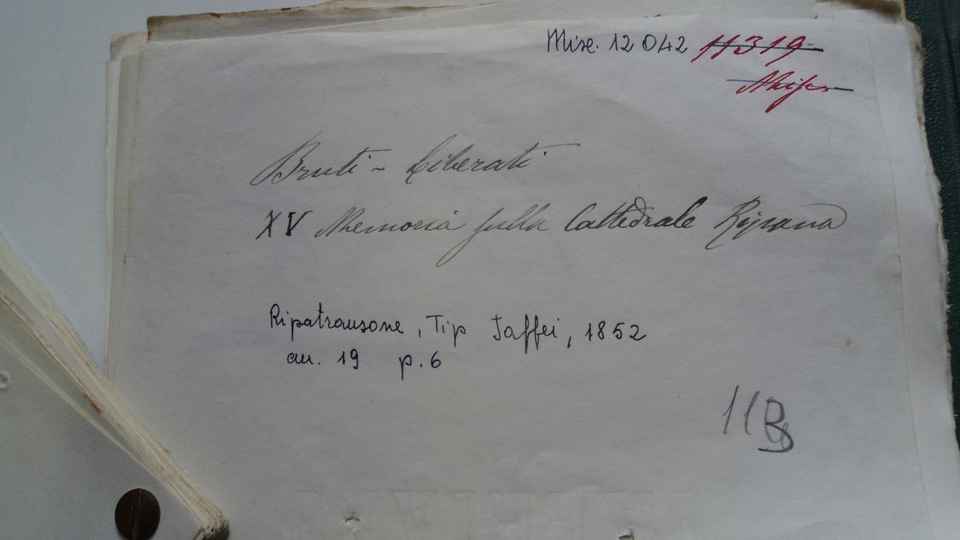 Misc. 12042 11319
Bruti - Liberati
XV Memoria sulla Cattedrale Ripana
Ripatransone, Tip Jaffei, 1852
au. 19 p. 6
11B